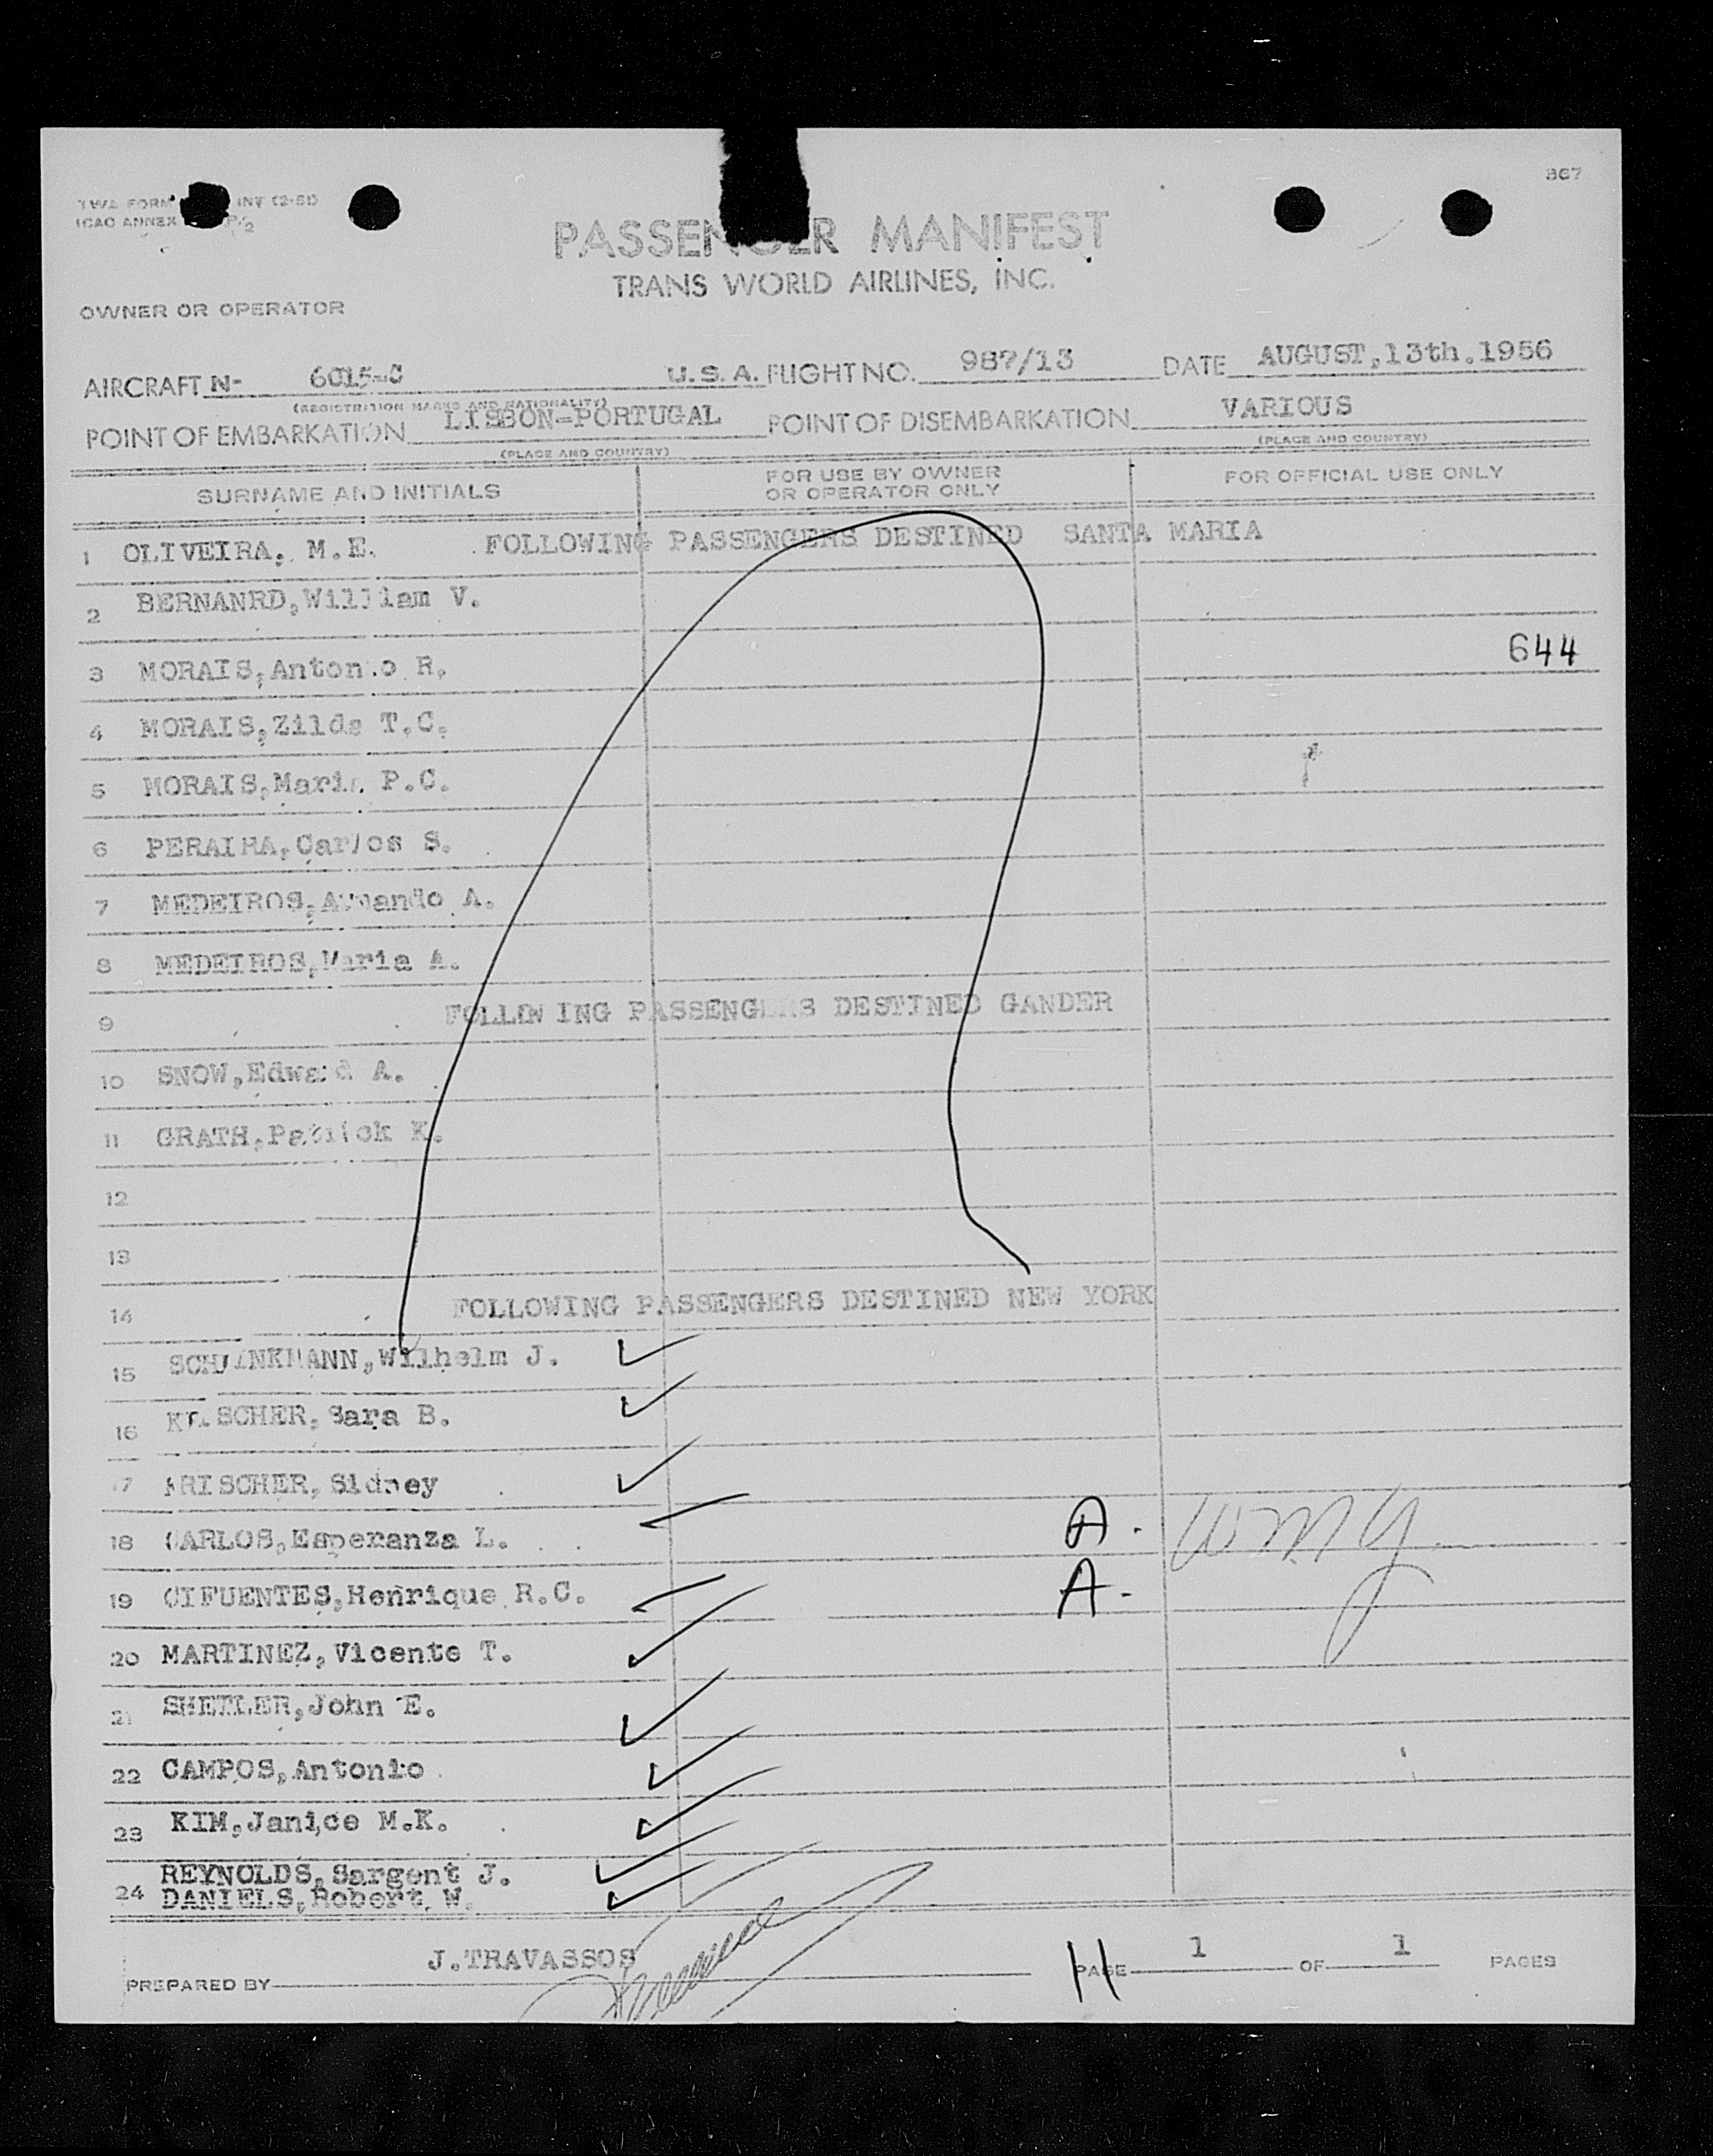 867
TWA FORM INV (2-51)
ICAO ANNEX
PASSENGER MANIFEST
TRANS WORLD AIRLINES, INC.
OWNER OR OPERATOR
AIRCRAFT N- 6015-C U.S.A. FLIGHT NO. 987/13 DATE AUGUST,13th.1956
(REGISTRATION MARKS AND NATIONALITY)
POINT OF EMBARKATION LISBON-PORTUGAL POINT OF DISEMBARKATION VARIOUS
(PLACE AND COUNTRY) (PLACE AND COUNTRY)
SURNAME AND INITIALS FOR USE BY OWNER OR OPERATOR ONLY FOR OFFICIAL USE ONLY
1 OLIVEIRA, M.E. FOLLOWING PASSENGERS DESTINED SANTA MARIA
2 BERNANRD,William V.
644
3 MORAIS,Antonio R.
4 MORAIS,Zilda T.C.
5 MORAIS,Maria P.C.
6 PERAIRA,Carlos S.
7 MEDEIROS,Armando A.
8 MEDEIROS,Maria A.
9 FOLLOWING PASSENGERS DESTINED GANDER
10 SNOW,Edward A.
11 GRATH,Patrick K.
12
13
14 FOLLOWING PASSENGERS DESTINED NEW YORK
15 Wilhelm J.
16 Sara B.
17 KRISCHER, Sidney
18 CARLOS,Esperanza L. A.
19 CIFUENTES,Henrique R.C. A-
20 MARTINEZ,Vicente T.
21 SHETLER,John E.
22 CAMPOS,Antonio
23 KIM,Janice M.K.
24 REYNOLDS,Sargent J.
DANIELS,Robert W.
PREPARED BY J.TRAVASSOS PAGE 1 OF 1 PAGES